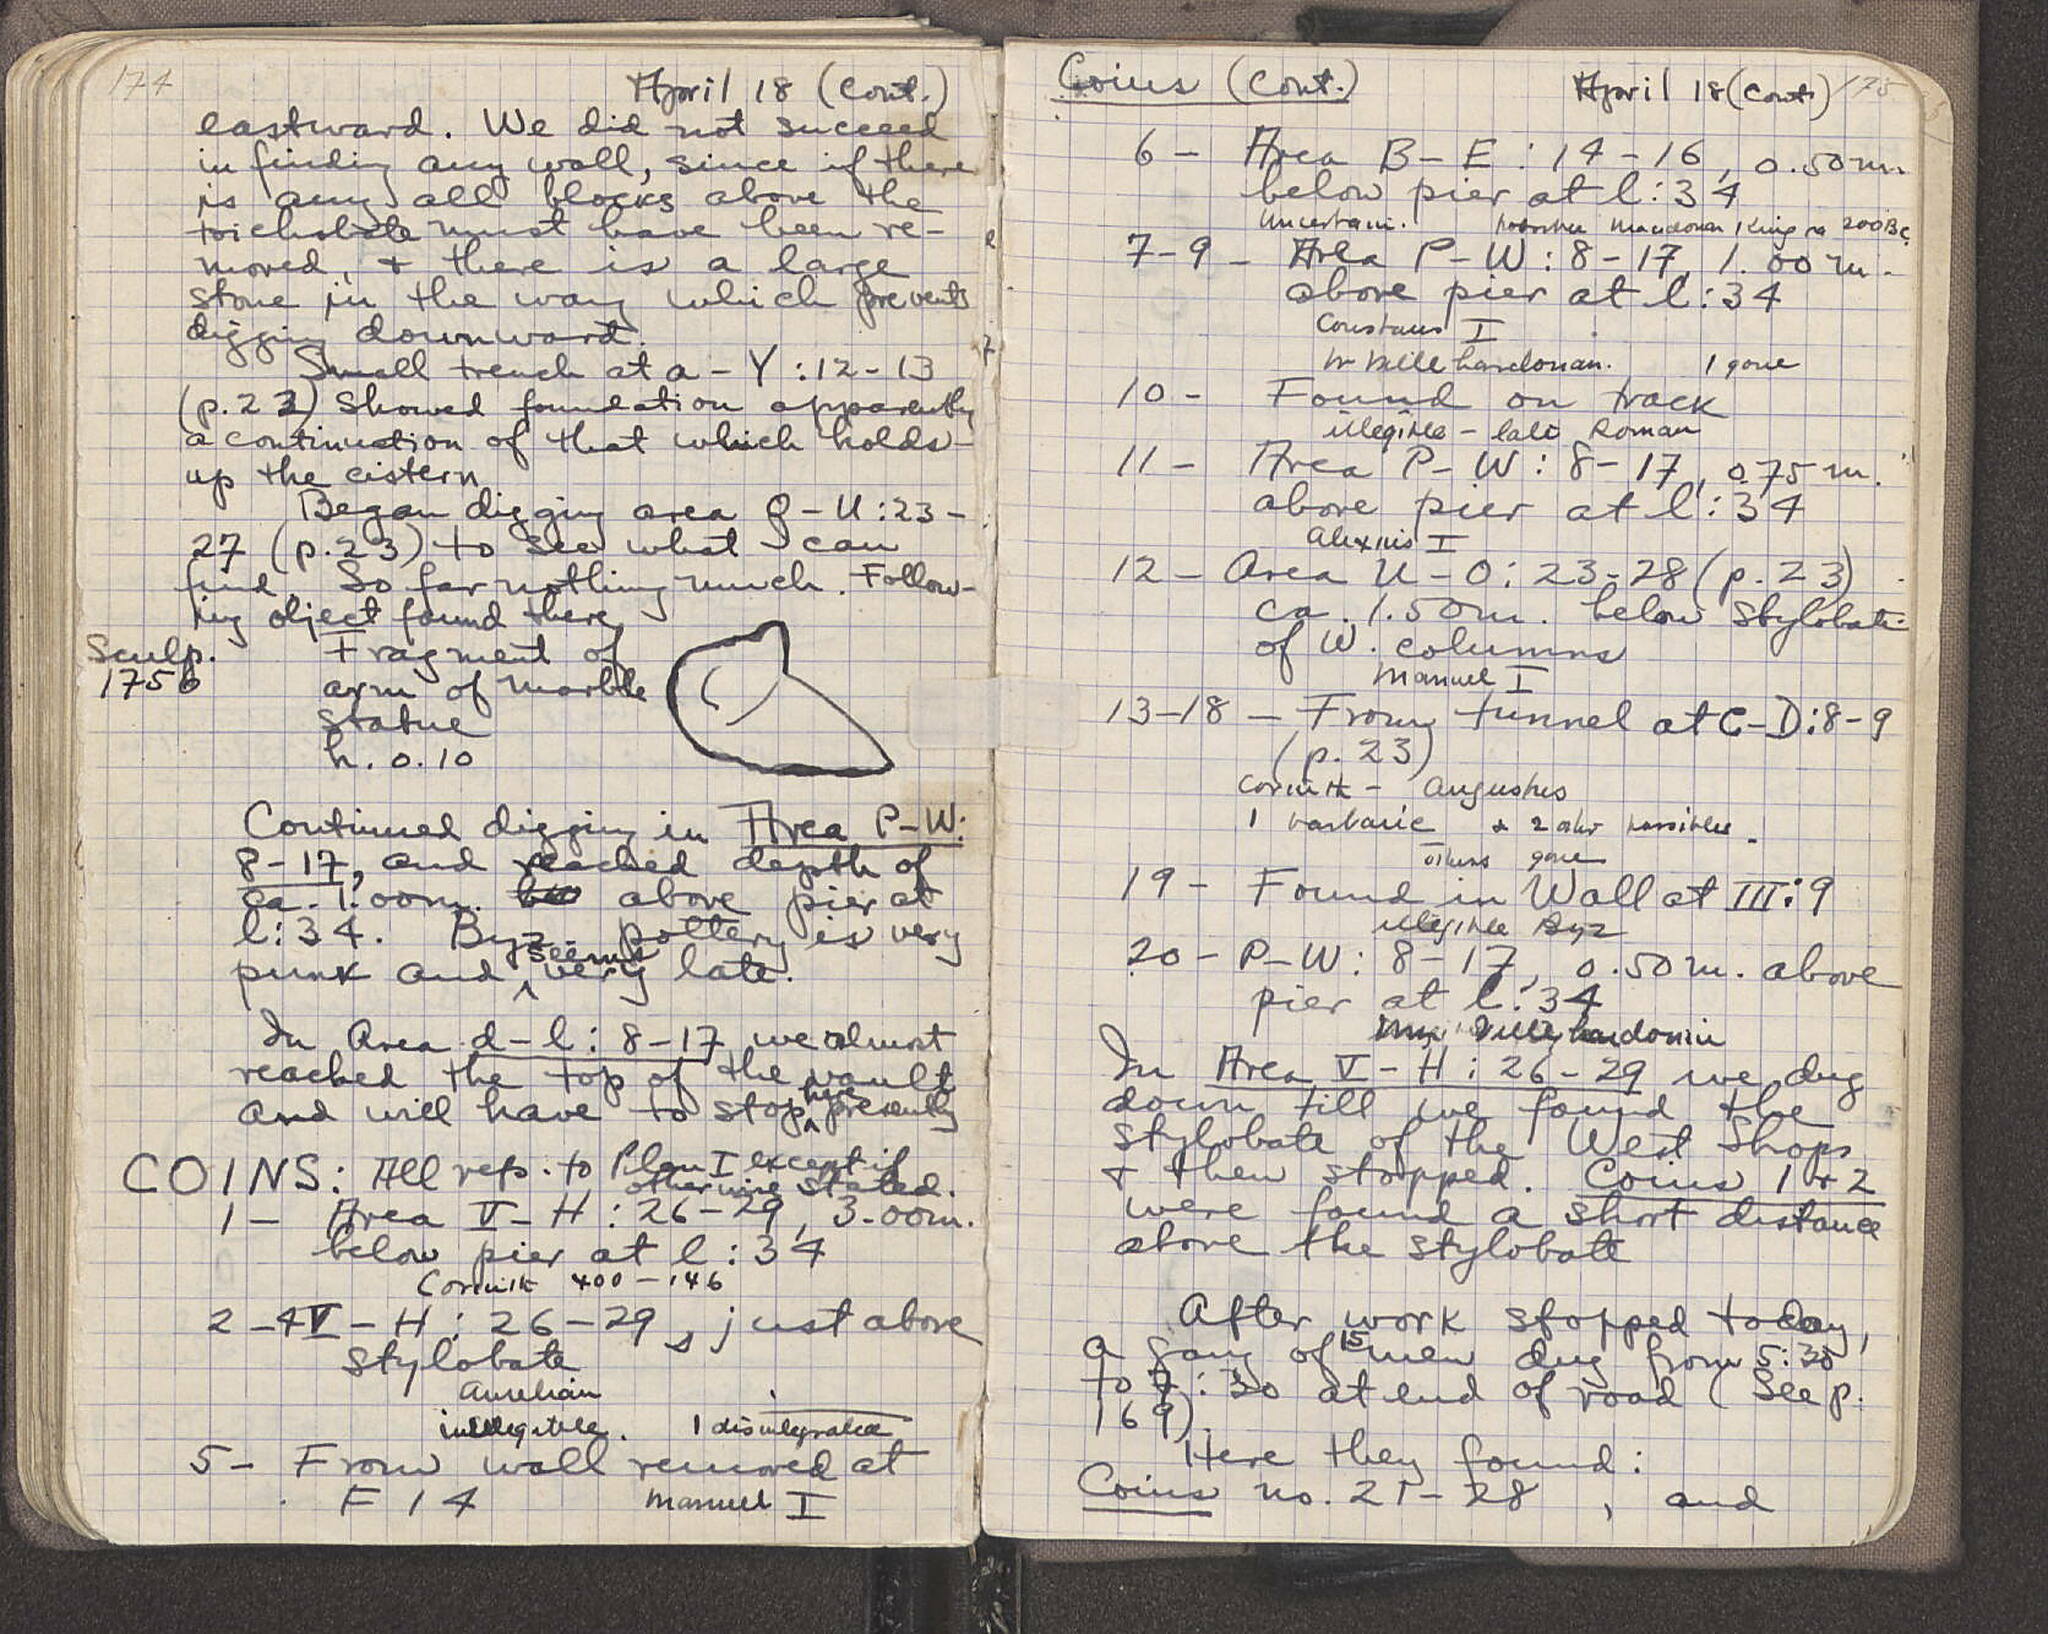 174
April 18 (cont.)
eastward. We did not succeed
in finding any wall, since if there
is any all blocks above the
toichobate must have been re-
moved, + there is a large
stone in the way which prevents
digging downward.
Small trench at a - Y : 12 - 13
(p. 23) showed foundation apparently
a continuation of that which holds
up the cistern
Began digging area Q - U : 23 -
27 (p. 23) to see what I can
find. So far nothing much. Follow-
ing object found there
Sculp.
1756
Fragment of
arm of marble
statue
h. 0.10
Continued digging in Area P-W:
8-17, and reached depth of
ca. 1.00m. above pier at
l:34. Byz. pottery is very
punk and seems very late.
In Area d-l: 8-17 we almost
reached the top of the vault
and will have to stop here presently
COINS: All refs. to Plan I except if
otherwise stated.
1 - Area V-H : 26-29, 3.00m.
below pier at l : 34
Corinth 400-146
2-4 V-H : 26-29, just above
stylobate
Aurelian
illegible. 1 disintegrated
5 - From wall removed at
F 14 Manuel I
Coins (cont.) April 18 (cont.) 175
6 - Area B-E : 14-16, 0.50m.
below pier at l:34
Uncertain. Macedonian King ca 200 BC
7-9 - Area P-W : 8-17, 1.00m.
above pier at l:34
Constans I
Villehardouin. 1 gone
10 - Found on track
illegible - late Roman
11 - Area P-W : 8-17, 0.75 m.
above pier at l:34
Alexius I
12 - Area U-O : 23-28 (p. 23)
ca. 1.50m. below stylobate
of W. columns
Manuel I
13-18 - From tunnel at C-D:8-9
(p. 23)
Corinth - Augustus
1 barbaric + 2 other possibles.
others gone
19 - Found in Wall at III:9
illegible Byz
20 - P-W : 8-17, 0.50m. above
pier at l:34
Villehardouin
In Area V-H : 26-29 we dug
down till we found the
stylobate of the West Shops
+ then stopped. Coins 1 + 2
were found a short distance
above the stylobate
After work stopped today,
a gang of 15 men dug from 5:30
to 7:30 at end of road (See p.
169).
Here they found:
Coins no. 21-28 , and